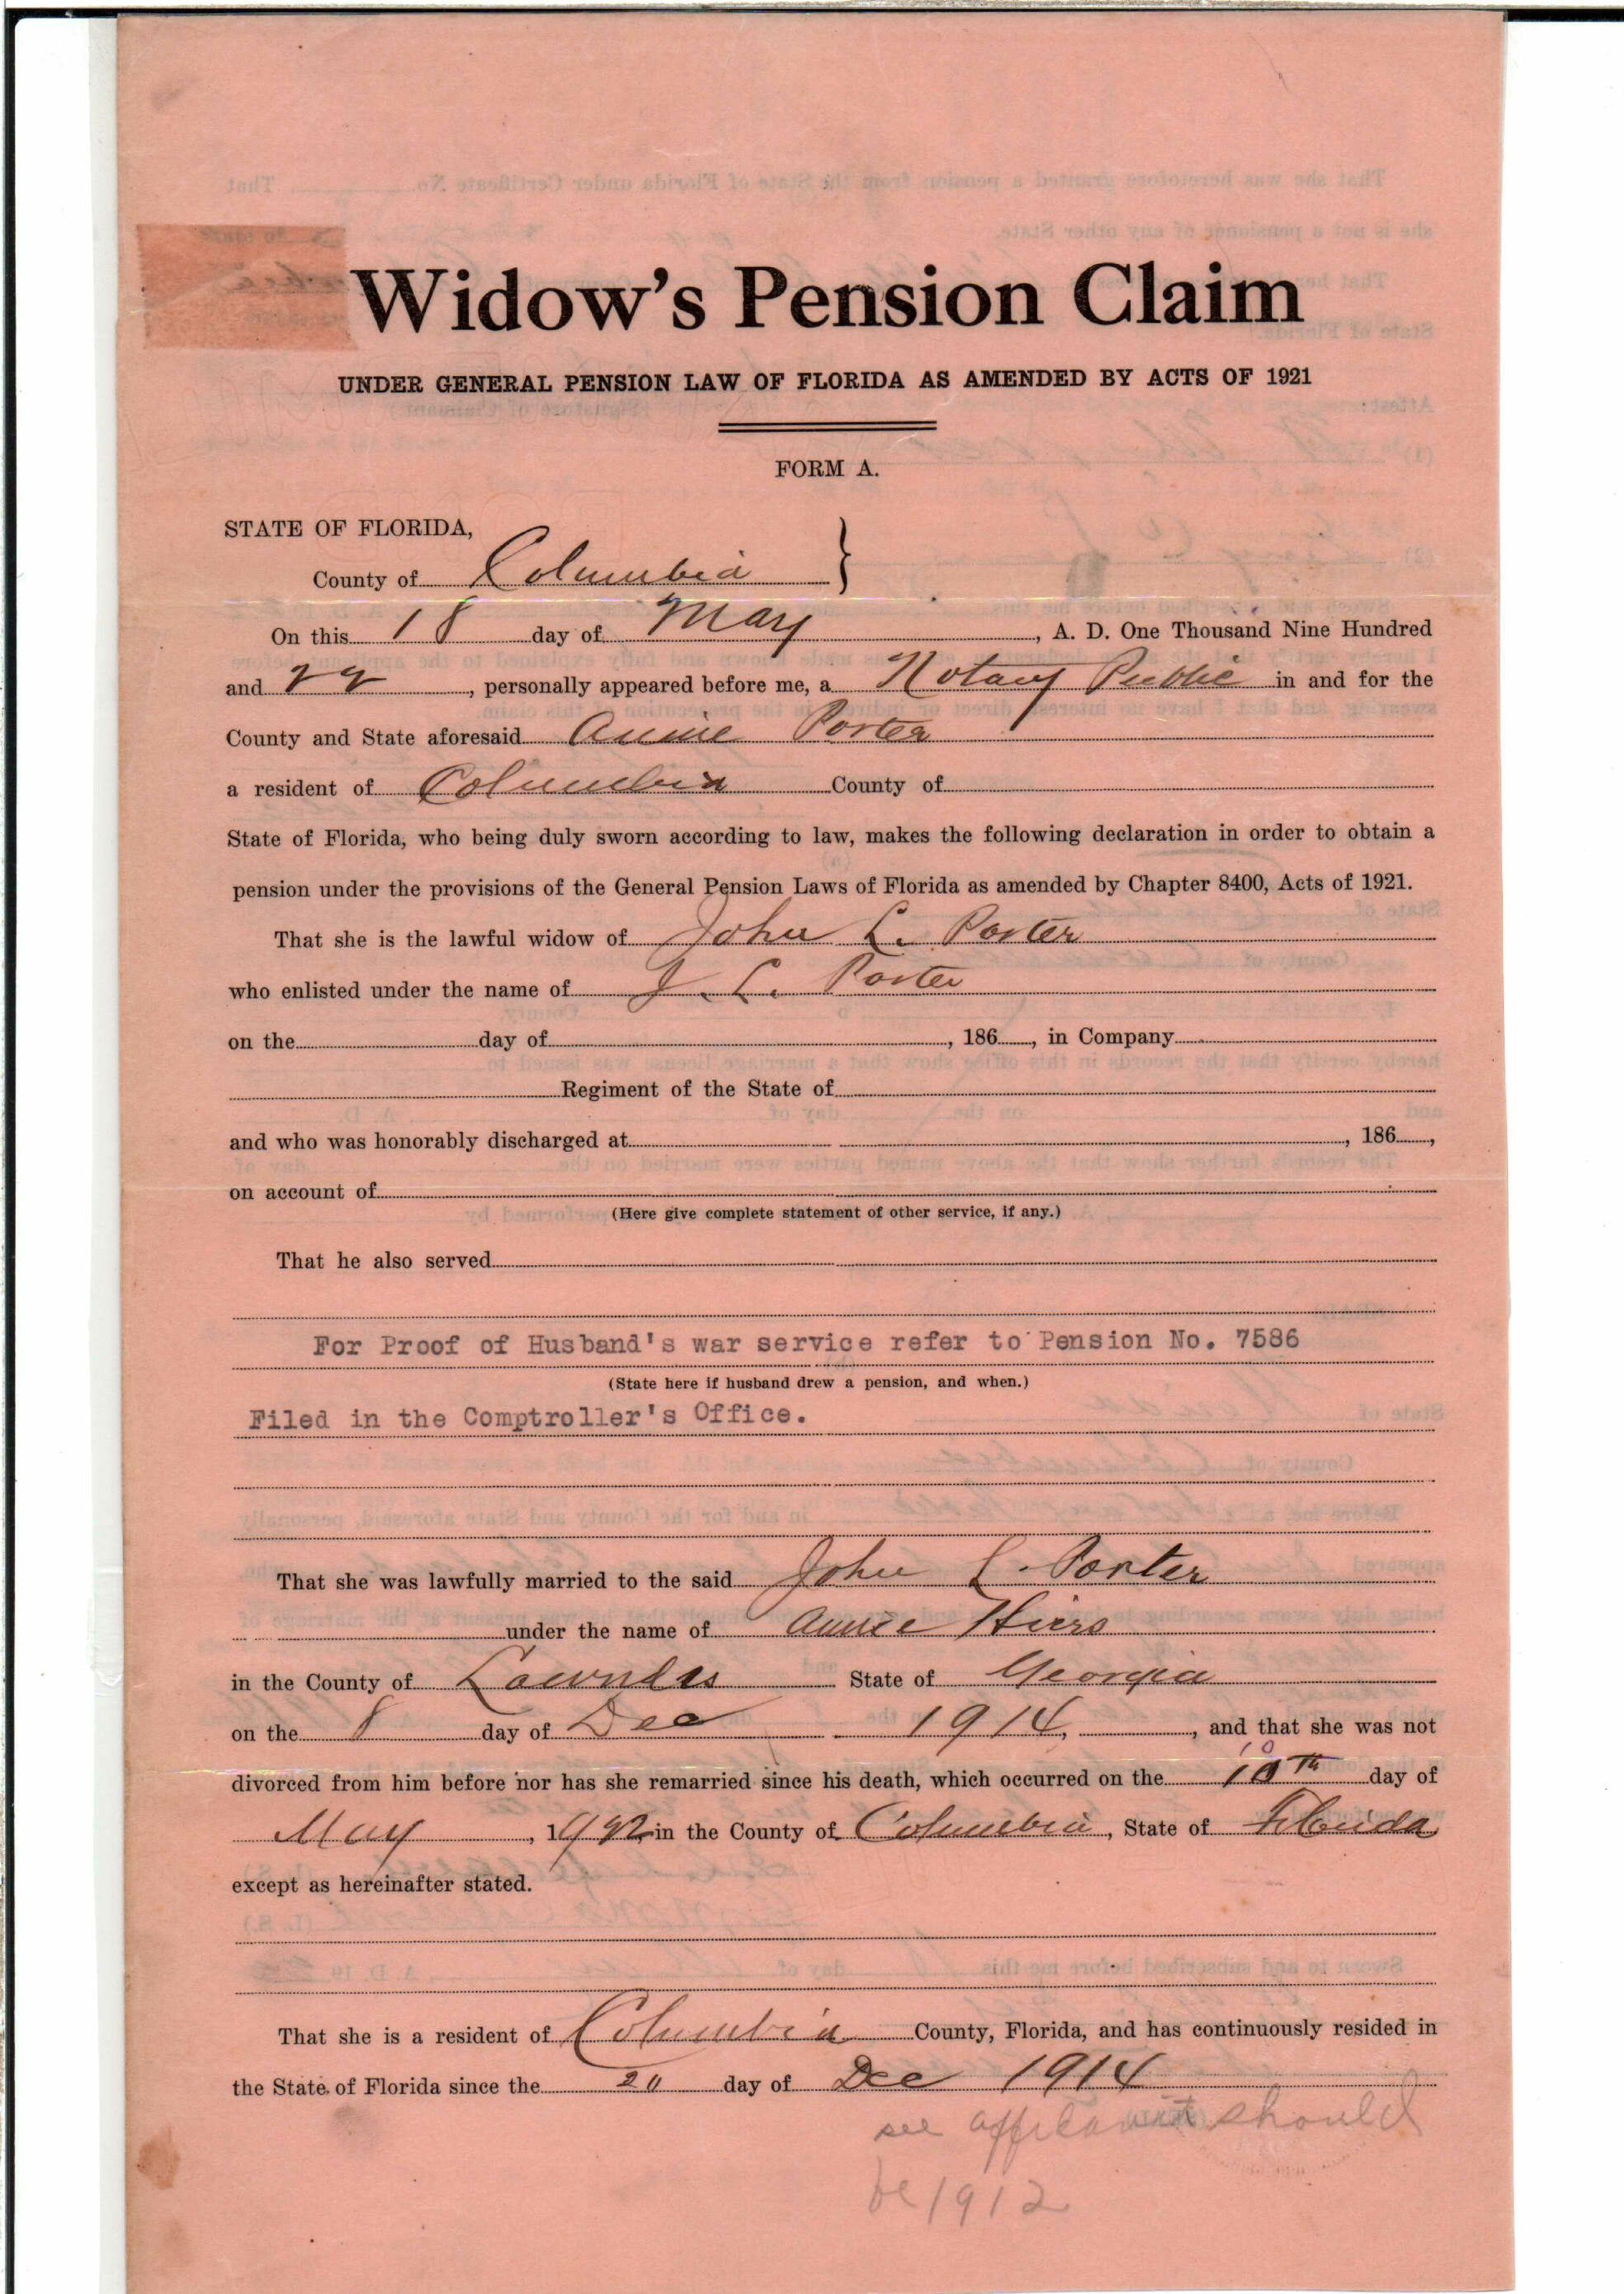 Widow's Pension Claim
UNDER GENERAL PENSION LAW OF FLORIDA AS AMENDED BY ACTS OF 1921
FORM A.
STATE OF FLORIDA,
County of Columbia }
On this 18 day of May, A. D. One Thousand Nine Hundred
and 22, personally appeared before me, a Notary Public in and for the
County and State aforesaid Annie Porter
a resident of Columbia County of
State of Florida, who being duly sworn according to law, makes the following declaration in order to obtain a
pension under the provisions of the General Pension Laws of Florida as amended by Chapter 8400, Acts of 1921.
That she is the lawful widow of John L. Porter
who enlisted under the name of J. L. Porter
on the day of , 186 , in Company
Regiment of the State of
and who was honorably discharged at , 186 ,
on account of
(Here give complete statement of other service, if any.)
That he also served
For Proof of Husband's war service refer to Pension No. 7586
(State here if husband drew a pension, and when.)
Filed in the Comptroller's Office.
That she was lawfully married to the said John L. Porter
under the name of Annie Hiers
in the County of Lowndes State of Georgia
on the 8 day of Dec 1914, , and that she was not
divorced from him before nor has she remarried since his death, which occurred on the 10th day of
May, 1922 in the County of Columbia, State of Florida
except as hereinafter stated.
That she is a resident of Columbia County, Florida, and has continuously resided in
the State of Florida since the 20 day of Dec 1914
see should
be 1912